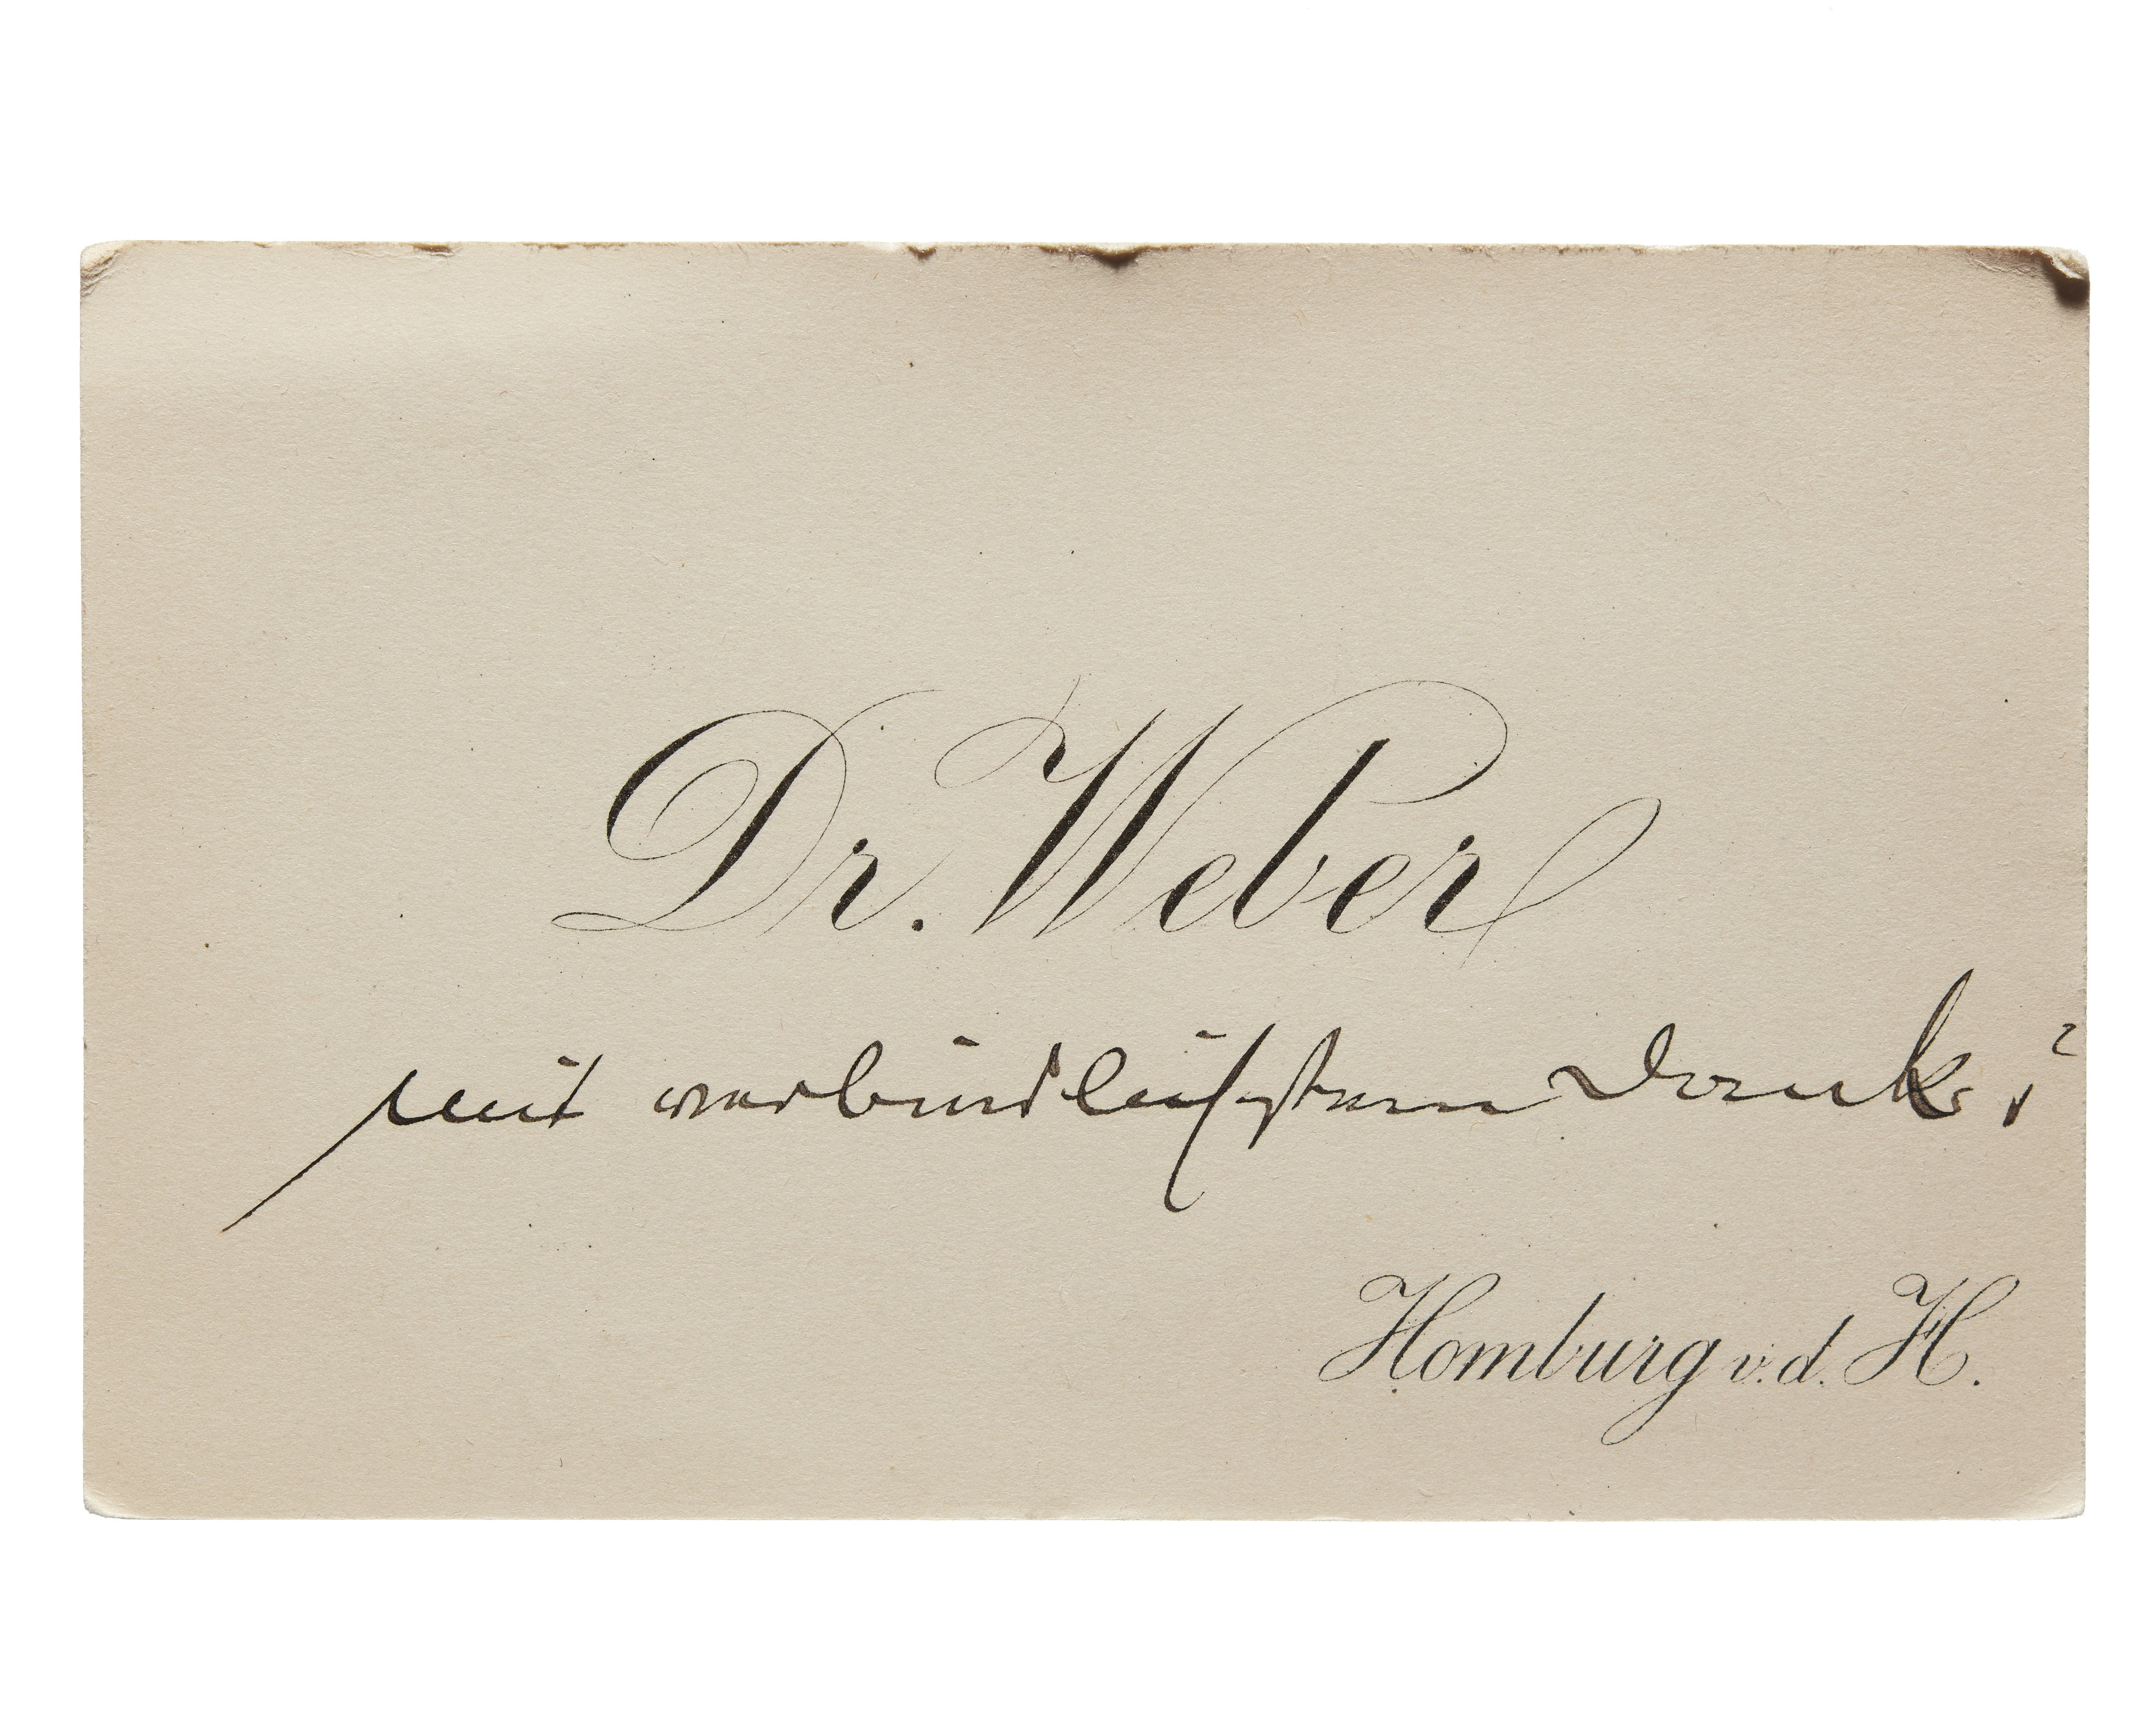 Dr. Weber
mit verbindlichstem Dank!
Homburg v. d. H.